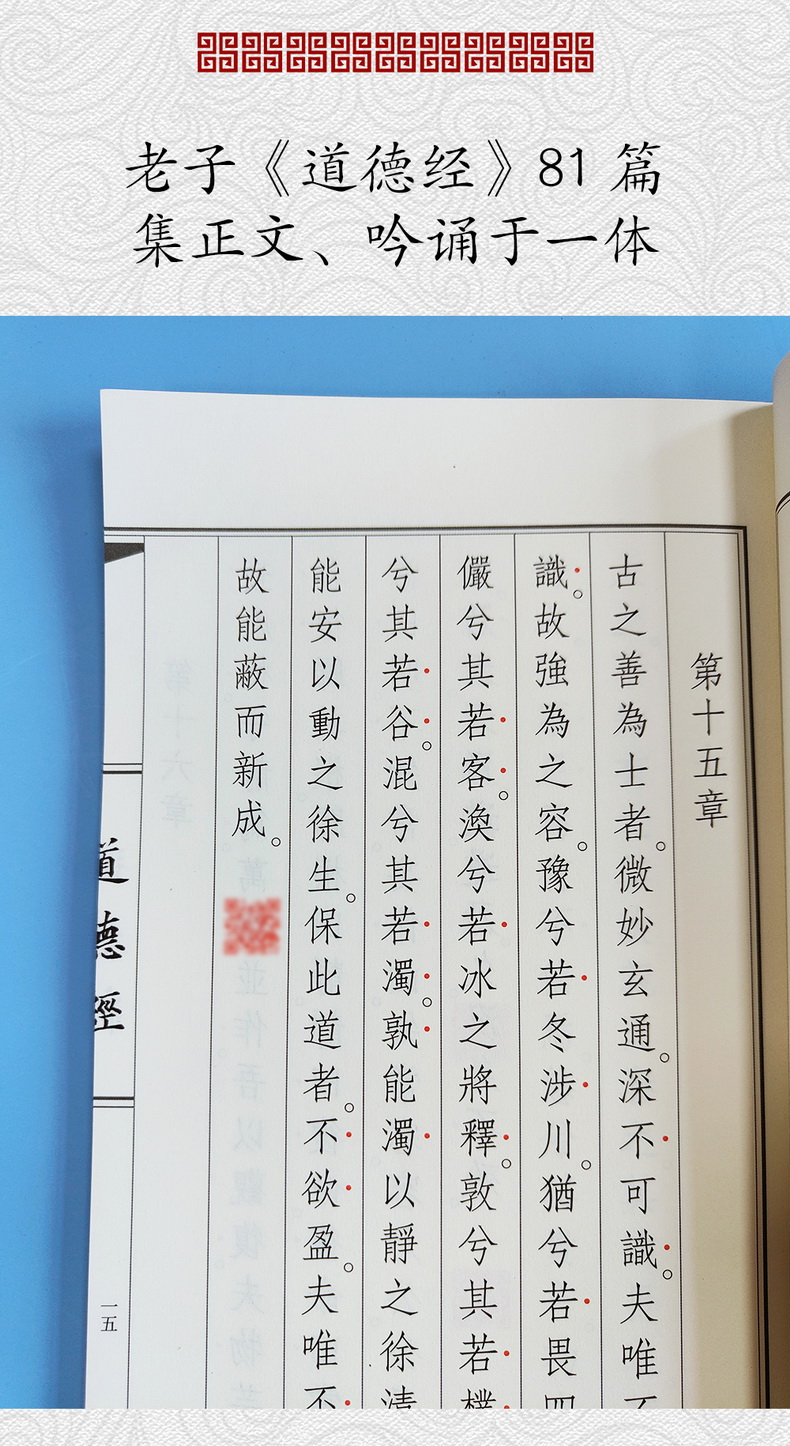 老子《道德经》81 篇
集正文、吟诵于一体
第十五章
古之善為士者。微妙玄通。深不可識。夫唯不
識。故強為之容。豫兮若冬涉川。猶兮若畏四
儼兮其若客。渙兮若冰之將釋。敦兮其若樸
兮其若谷。混兮其若濁。孰能濁以靜之徐清
能安以動之徐生。保此道者。不欲盈。夫唯不
故能蔽而新成。
道德經
一五